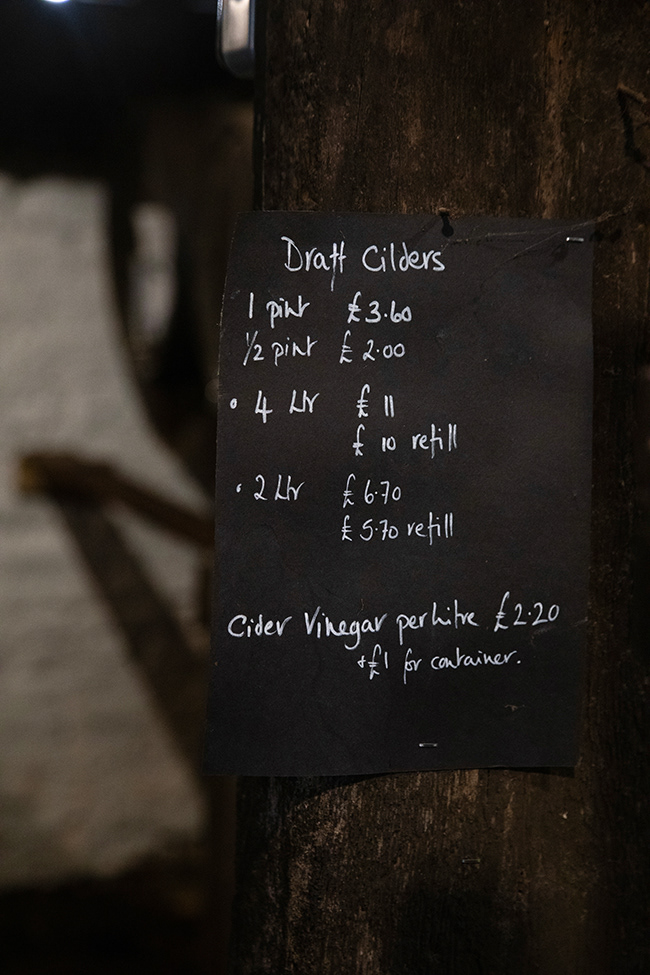 Draft Cilders
1 pint £3.60
1/2 pint £2.00
• 4 Ltr £11
£10 refill
• 2 Ltr £6.70
£5.70 refill
Cider Vinegar per Litre £2.20
+£1 for container.